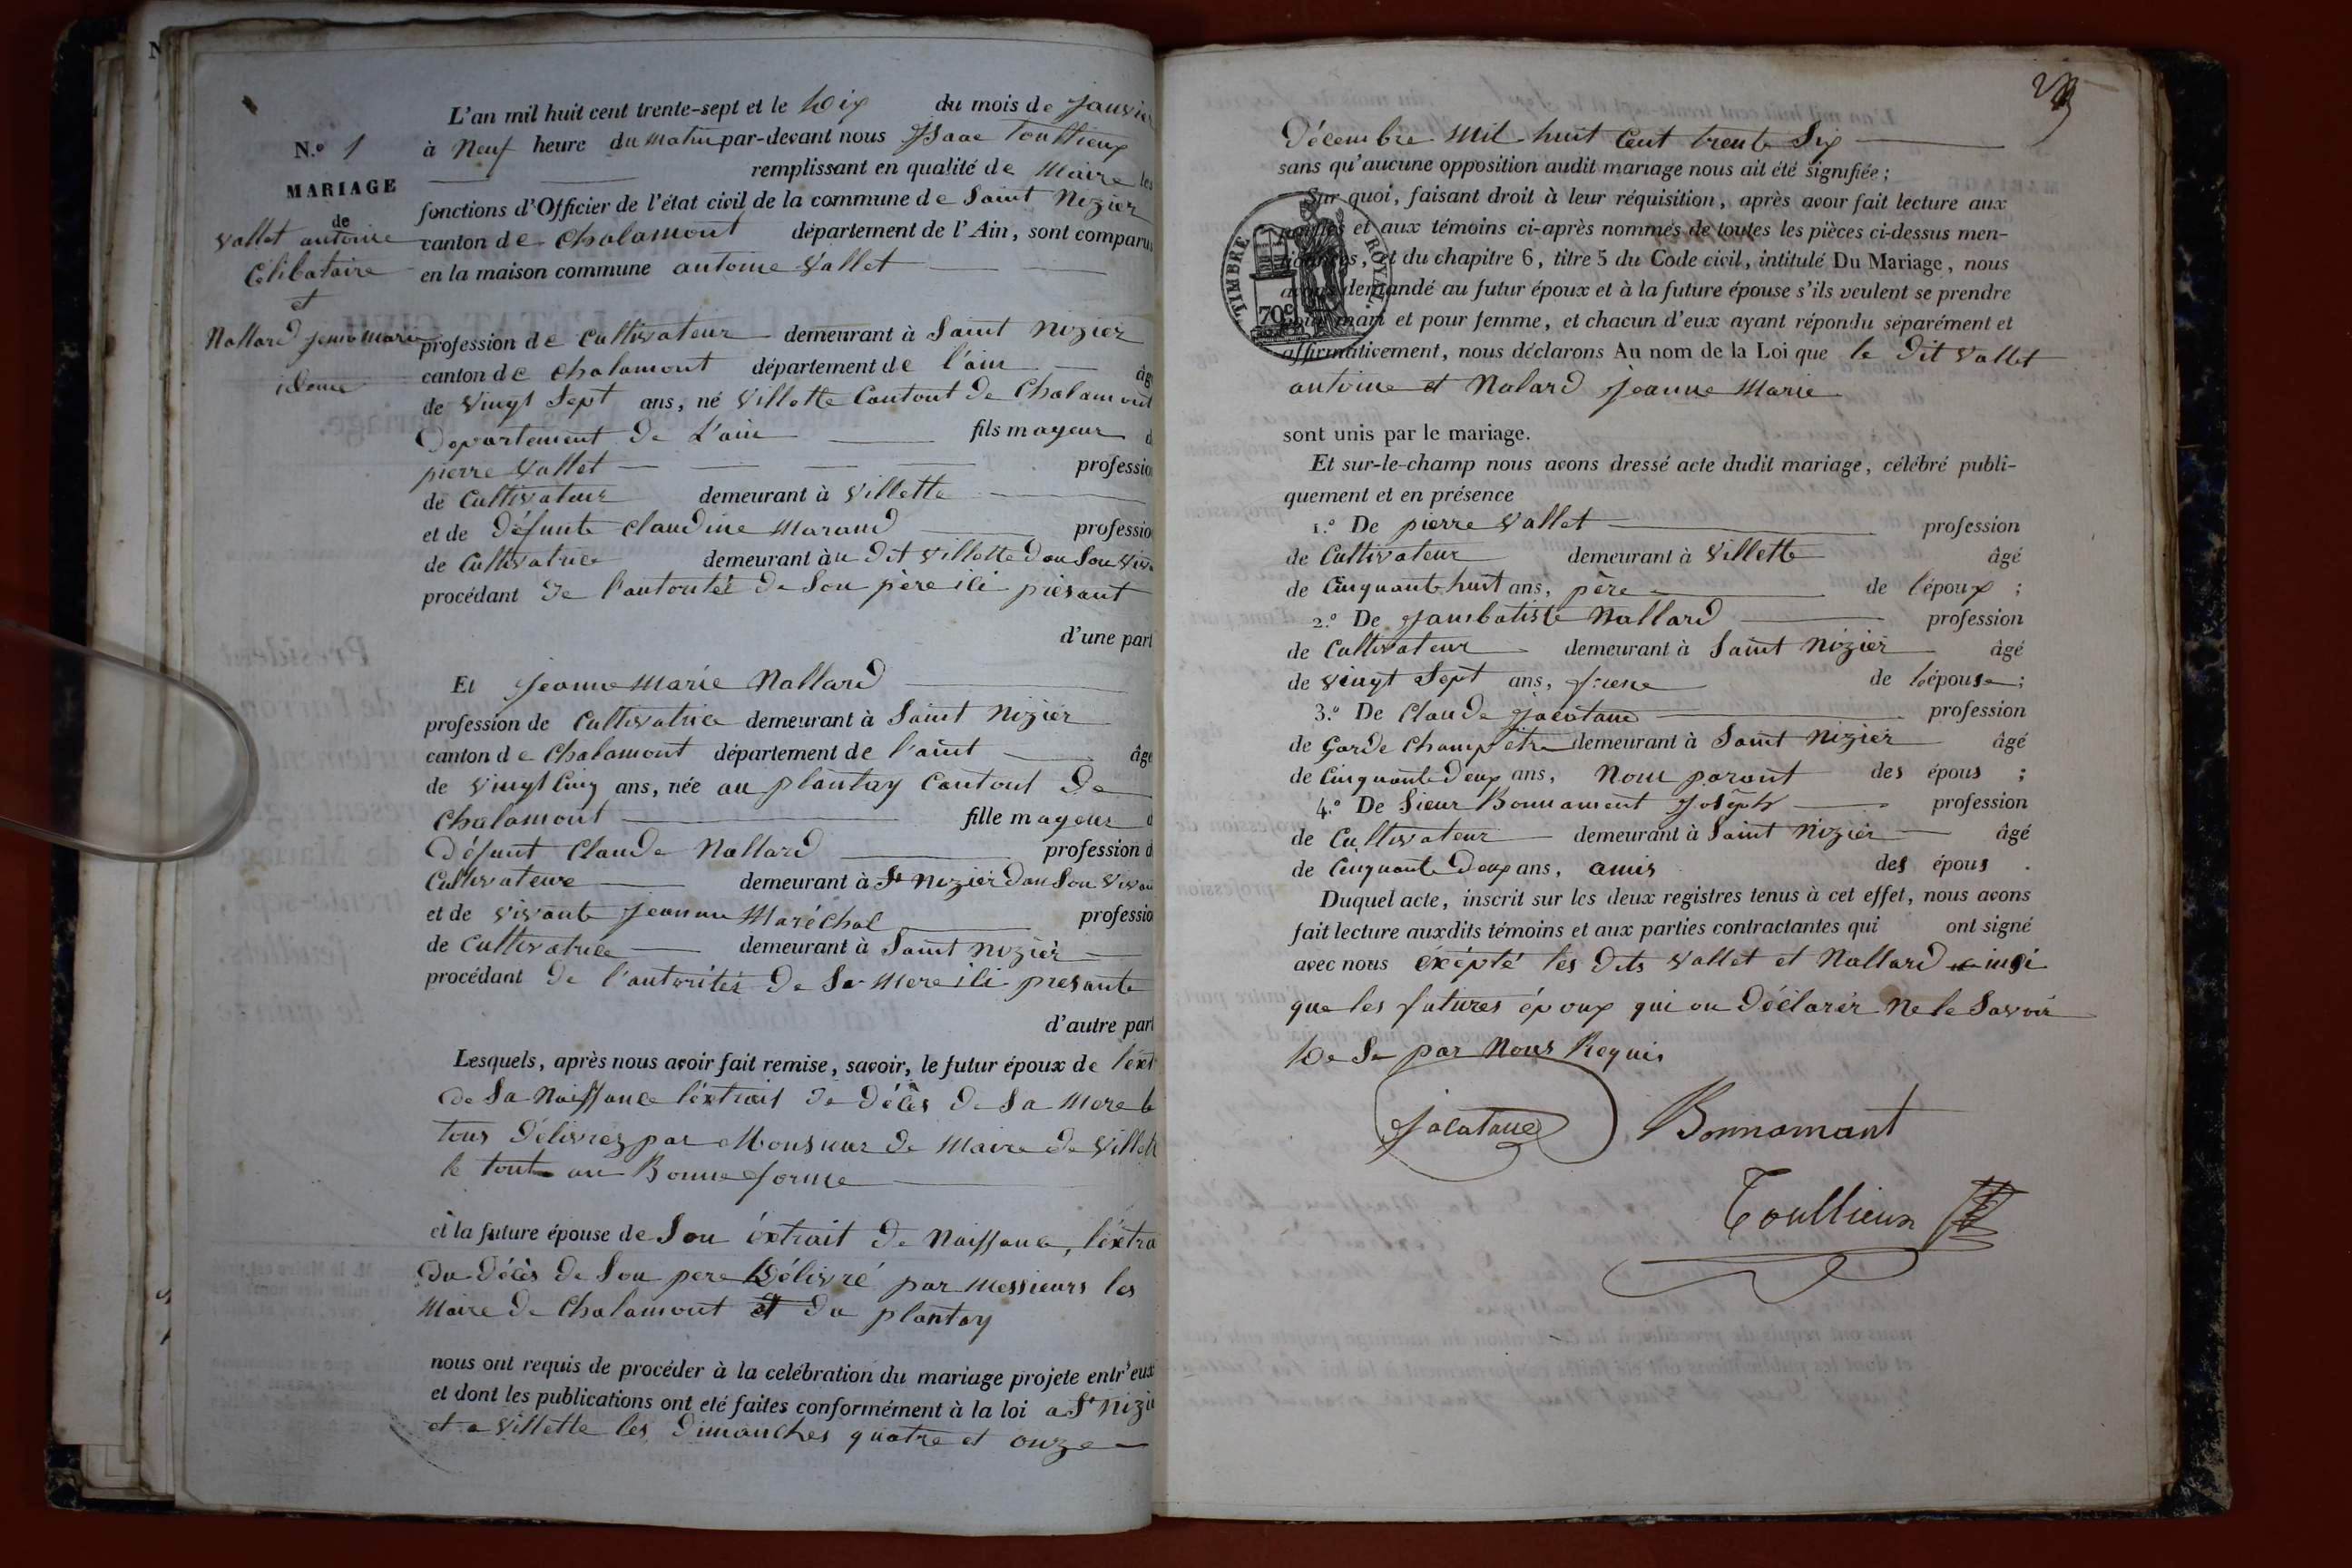 N.º 1
MARIAGE
de
Vallet antoine
Célibataire
et
Nallard jeanne Marie
idem
L'an mil huit cent trente-sept et le Dix du mois de janvier
à Neuf heure du matin par-devant nous Isaac Toullieux
remplissant en qualité de Maire les
fonctions d'Officier de l'état civil de la commune de Saint Nizier
canton de Chalamont département de l'Ain, sont comparus
en la maison commune antoine Vallet
profession de Cultivateur demeurant à Saint Nizier
canton de Chalamont département de l'ain âg
de Vingt Sept ans, né Villette Cantont De Chalamont
Département De L'ain fils mayeur d
pierre Vallet professio
de Cultivateur demeurant à Villette
et de Défunte Claudine Maraud professio
de Cultivatrice demeurant au Dit Villette Dan Son Viva
procédant De l'autorités De Son père ici présant
d'une part
Et Jeanne Marie Nallard
profession de Cultivatrice demeurant à Saint Nizier
canton de Chalamont département de l'aint âgé
de Vingt Cinq ans, née au plantay Cantont De
Chalamont fille mayeur d
Défunt Claude Nallard profession d
Cultivateure demeurant à St Nizier Dan Son Vivan
et de Vivante Jeanne Maréchal professio
de Cultivatrice demeurant à Saint Nizier
procédant De l'autorités De Sa Mere ici presante
d'autre part
Lesquels, après nous avoir fait remise, savoir, le futur époux de l'éxt
De Sa Naissance l'éxtrait De Décès De Sa Mere le
tous Délivrez par Monsieur De Maire De Villett
le tout an Bonne forme
et la future épouse de Son éxtrait De Naissance, l'éxtra
Du Décès De Son pere Délivré par Messieurs les
Maire De Chalamont et Du plantay
nous ont requis de procéder à la celébration du mariage projete entr'eux
et dont les publications ont eté faites conformément à la loi a St Nizie
et a Villette les Dimanches quatre et onze
Décembre Mil huit Cent trente Six
sans qu'aucune opposition audit mariage nous ait été signifiée;
Sur quoi, faisant droit à leur réquisition, après avoir fait lecture aux
parties et aux témoins ci-après nommés de toutes les pièces ci-dessus men-
tionnées, et du chapitre 6, titre 5 du Code civil, intitulé Du Mariage, nous
avons demandé au futur époux et à la future épouse s'ils veulent se prendre
pour mari et pour femme, et chacun d'eux ayant répondu séparément et
affirmativement, nous déclarons Au nom de la Loi que le Dit Vallet
antoine et Nalard Jeanne Marie
TIMBRE ROYAL
70c
sont unis par le mariage.
Et sur-le-champ nous avons dressé acte dudit mariage, célébré publi-
quement et en présence
1.º De pierre Vallet profession
de Cultivateur demeurant à Villette âgé
de Cinquante huit ans, père de l'époux ;
2.º De Janbatiste Nallard profession
de Cultivateur demeurant à Saint Nizier âgé
de Vingt Sept ans, frere de l'épouse;
3.º De Claude Jacatane profession
de Garde Champetre demeurant à Saint Nizier âgé
de Cinquante Deux ans, Nom parant des épous ;
4.º De Sieur Bonnament Joseph profession
de Cultivateur demeurant à Saint Nizier âgé
de Cinquante Deux ans, amis des épous .
Duquel acte, inscrit sur les deux registres tenus à cet effet, nous avons
fait lecture auxdits témoins et aux parties contractantes qui ont signé
avec nous éxépté les Dits Vallet et Nallard insi
que les futures époux qui on Déclarér Ne le Savoir
De Se par Nous Requis
Jacatane Bonnamant
Toullieux